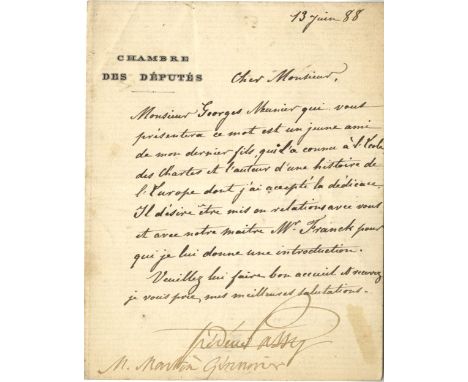 13 juin 88
CHAMBRE
DES DÉPUTÉS
Cher Monsieur,
Monsieur Georges Meunier qui vous
présentera ce mot est un jeune ami
de mon dernier fils, qu'il a connu à l'Ecole
des Chartes et l'auteur d'une histoire de
l'Europe dont j'ai accepté la dédicace.
Il désire être mis en relations avec vous
et avec notre maître Mr. Franck pour
qui je lui donne une introduction.
Veuillez lui faire bon accueil et recevez
je vous prie, mes meilleures salutations.
Frédéric Passy
M. Martin